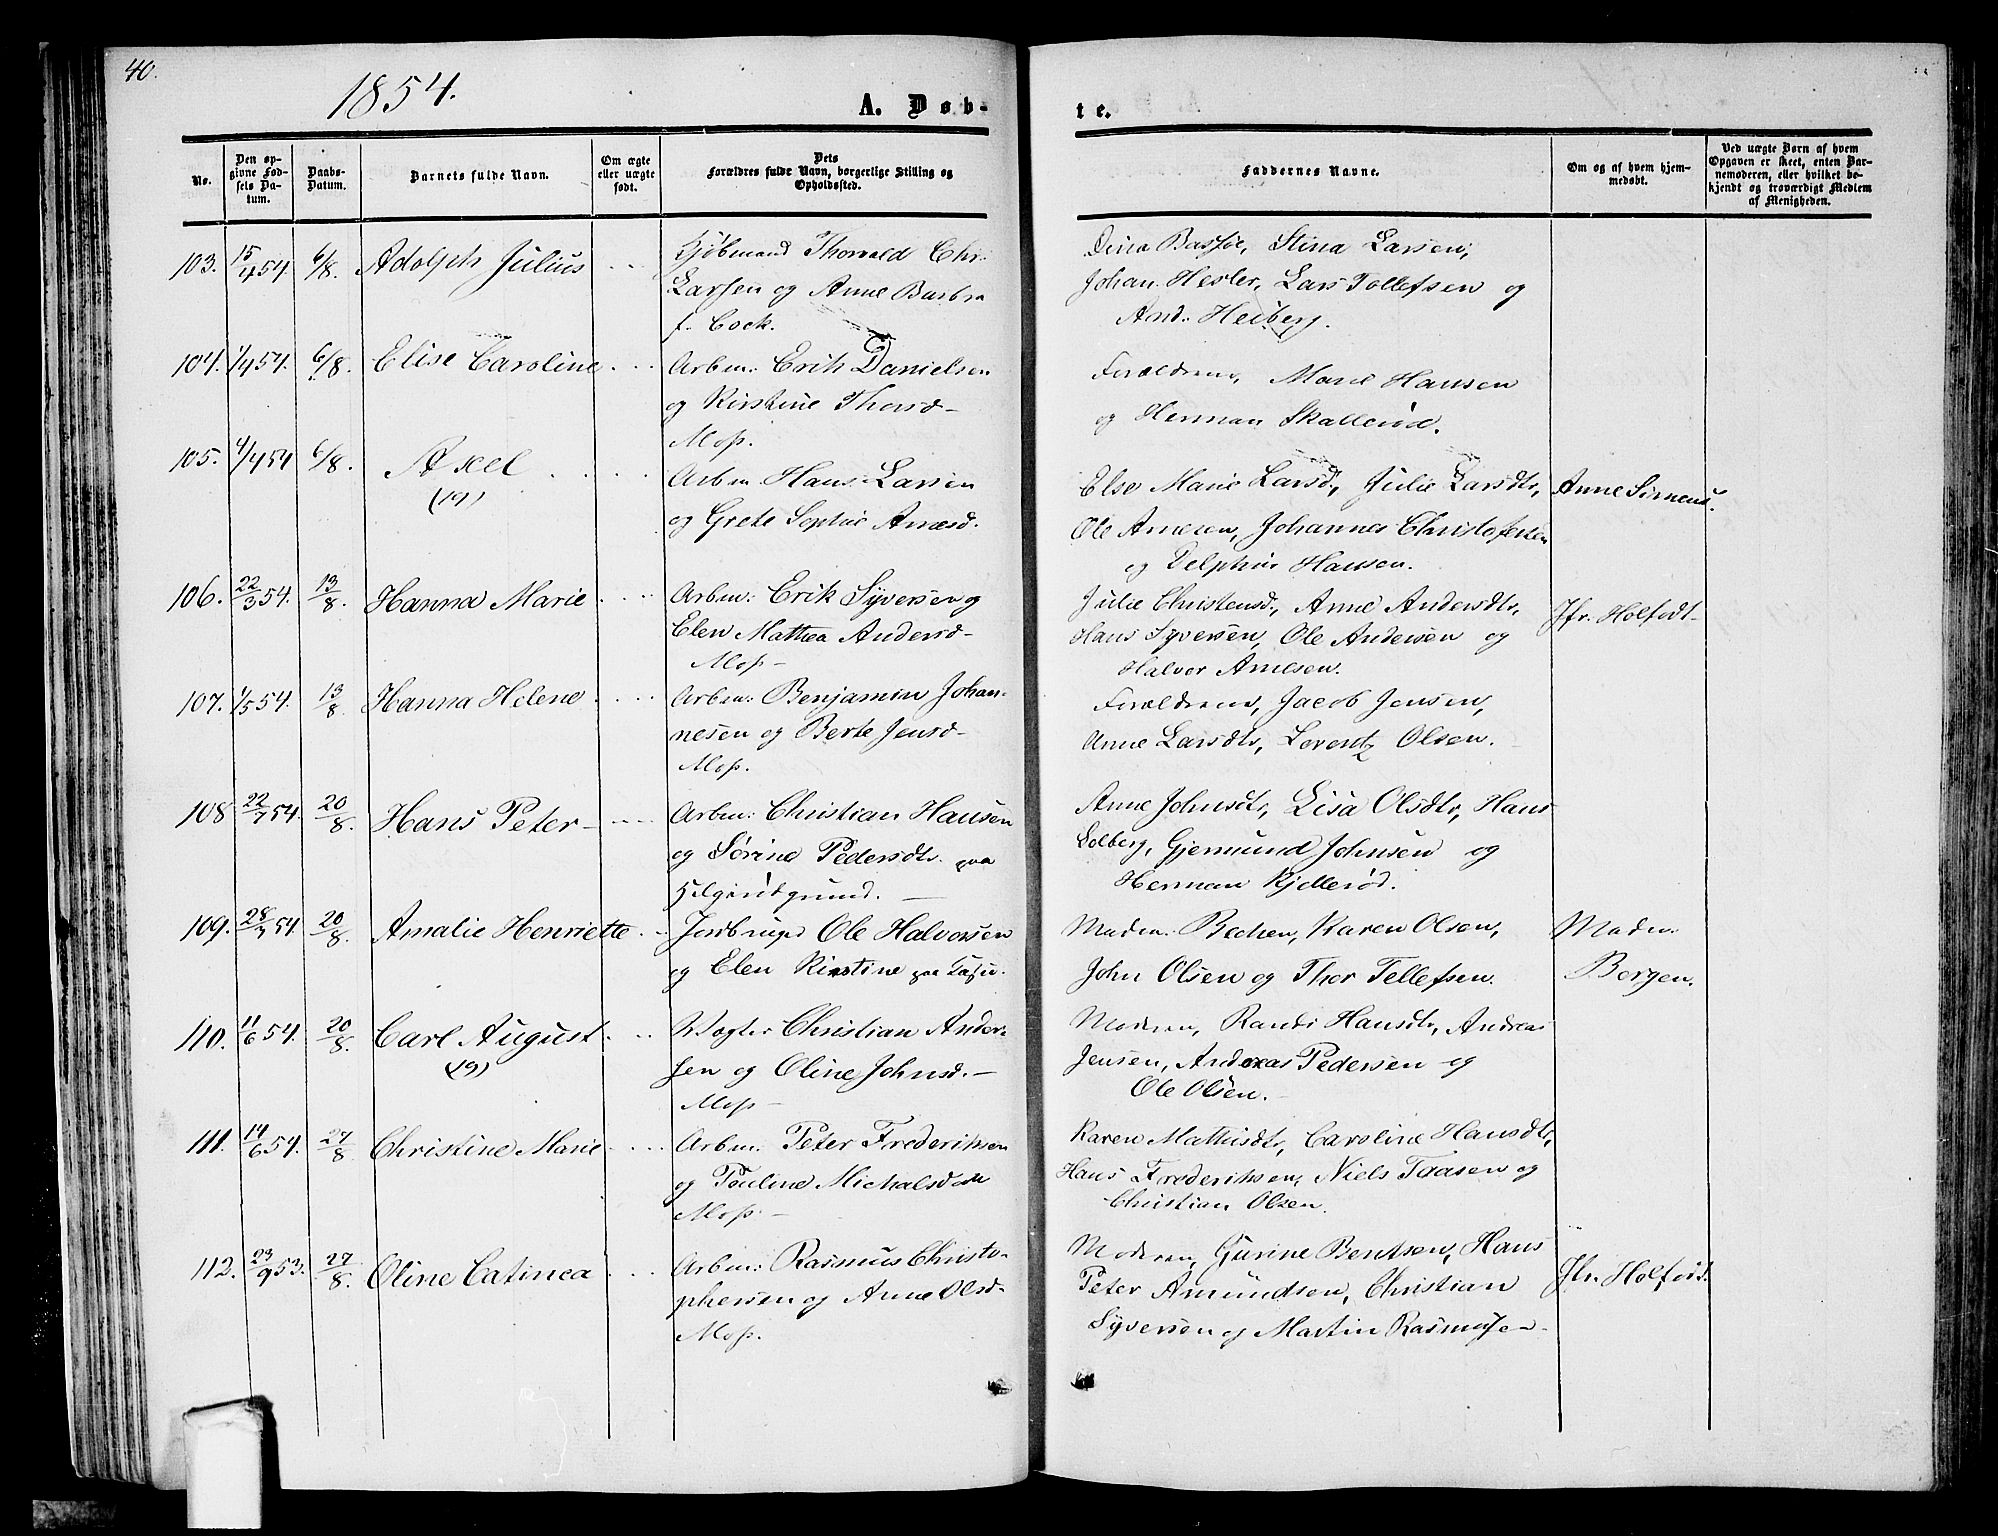 40.
1854.
A. Døb-
te.
No.
Den op-
givne Fød-
sels Da-
tum.
Daabs-
Datum.
Barnets fulde Navn.
Om ægte
eller uægte
født.
Dets
Forældres fulde Navn, borgerlige Stilling og
Opholdssted.
Faddernes Navne.
Om og af hvem hjem-
medøbt.
Ved uægte Børn af hvem
Opgaven er skeet, enten Bar-
nemoderen, eller hvilket be-
kjendt og troværdigt Medlem
af Menigheden.
103. 15/4 54. 6/8. Adolph Julius
Kjøbmand Thorvald Chr.
Larsen og Anne Barbra
f. Cock.
Stina Larsen,
Johan Hesler, Lars Tollefsen og
And. Heiberg.
104. 1/4 54. 6/8. Elise Caroline
Arbm: Erik Danielsen
og Kirstine Thorsd-
Moss.
Forældrene, Marie Hansen
og Herman Skallerød.
105. 4/4 54 6/8. Axel
(19)
Arbm Hans Larsen
og Grete Sophie Arnesd.
Else Marie Larsd, Julie Larsdtr,
Ole Arnesen, Johannes Christofersen
og Delphin Hansen.
Anne Simens.
106. 22/3 54. 13/8. Hanna Marie
Arbm: Erik Syversen og
Elen Mathea Andersd-
Moss-
Julie Christensd., Anne Andersdtr,
Hans Syversen, Ole Andersen og
Halvor Arnesen.
Jfr. Holfodt-
107. 1/5 54. 13/8. Hanna Helene
Arbm: Benjamin Johan-
nesen og Berte Jensd-
Moss.
Forældrene, Jacob Jensen,
Anne Larsdtr, Lorentz Olsen.
108 22/7 54. 20/8. Hans Peter-
Arbm: Christian Hansen
og Sørine Pedersdtr. paa
Helgerødgrund.
Anne Johnsdtr, Lisa Olsdtr, Hans
Solberg, Gjermund Johnsen og
Herman Kjellerød.
109. 28/7 54. 20/8. Amalie Henriette
Jordbruger Ole Halvorsen
og Elen Kirstine paa
Madm: Bechen, Karen Olsen,
John Olsen og Thor Tellefsen.
Madm:
Borgen.
110. 11/6 54. 20/8. Carl August
(19)
Vægter Christian Ander-
sen og Oline Johnsd.-
Moss-
Moderen, Randi Hansdtr, Andreas
Jensen, Andreas Pedersen og
Ole Olsen.
111. 14/6 54. 27/8. Christine Marie
Arbm: Peter Frederiksen
og Pouline Michalsdatr
Moss.-
Karen Mathisdtr, Caroline Hansdtr,
Hans Frederiksen, Niels Taasen og
Christian Olsen.
112. 23/9 53. 27/8. Oline Catinca
Arbm: Rasmus Christo-
phersen og Anne Olsd-
Moss.
Moderen, Gurine Bentsen, Hans
Peter Amundsen, Christian
Syversen og Martin Rasmussen-
Jfr. Holfodt.